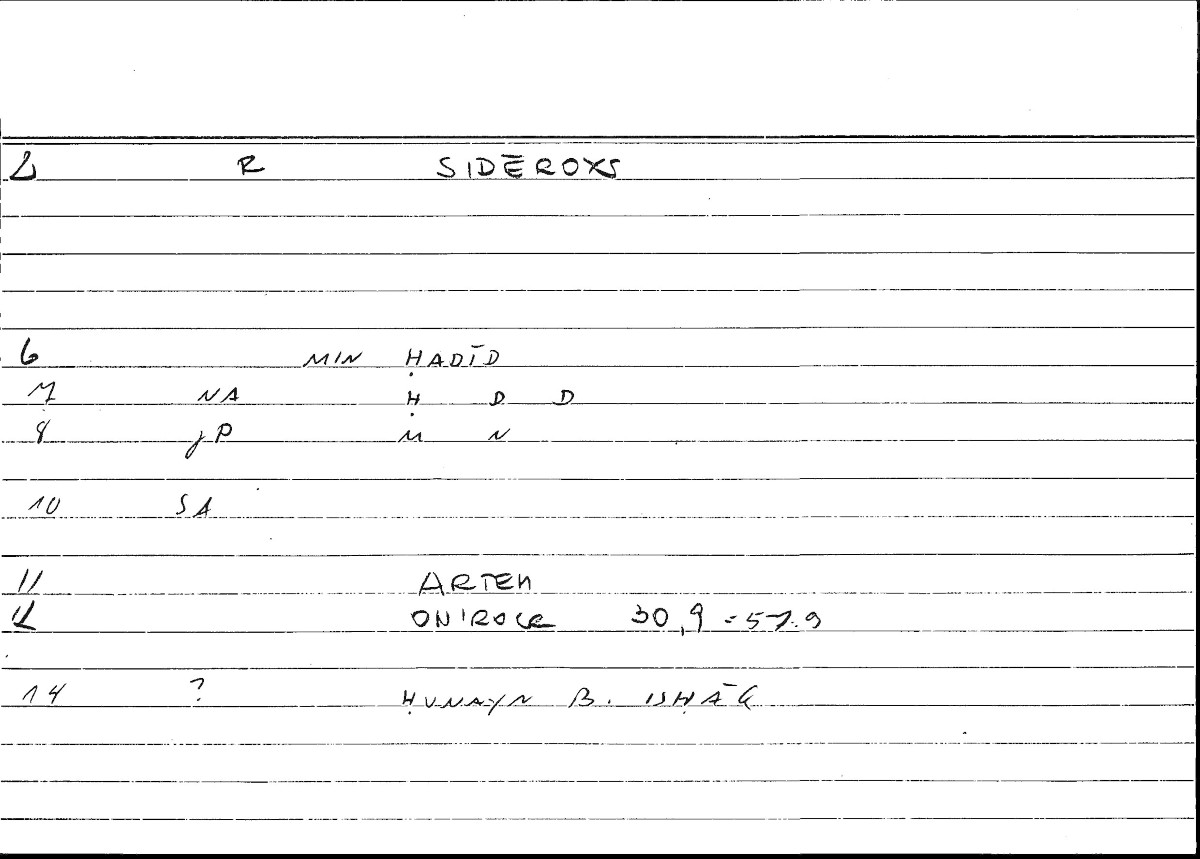 2 R SIDĒROXS
6 MIN ḤADĪD
7 NA Ḥ D D
8 jP M N
10 SA
11 ARTEM
12 ONIROCR 30,9 = 57.9
14 ? ḤUNAYN B. ISḤĀQ